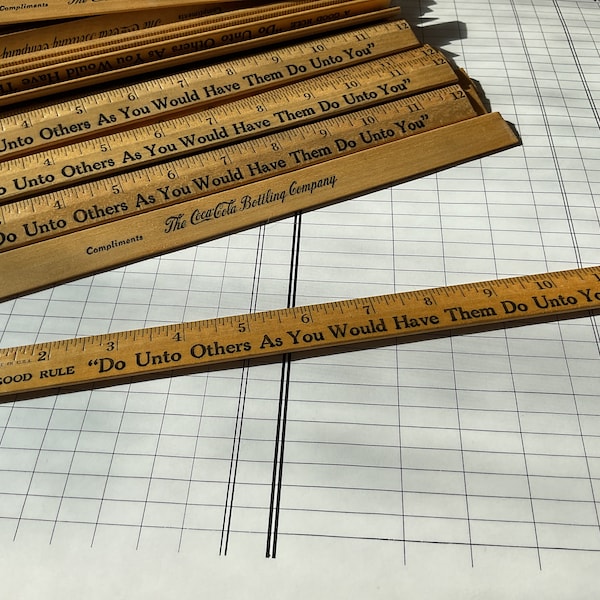 Compliments The Coca-Cola Bottling Company
"Do Unto Others As You Would Have
7 8 9 10 11
Unto Others As You Would Have Them Do Unto You"
4 5 6 7 8 9 10 11 12
Unto Others As You Would Have Them Do Unto You"
4 5 6 7 8 9 10 11 12
Do Unto Others As You Would Have Them Do Unto You"
Compliments The Coca-Cola Bottling Company
2 3 4 5 6 7 8 9 10 11
GOOD RULE "Do Unto Others As You Would Have Them Do Unto Yo